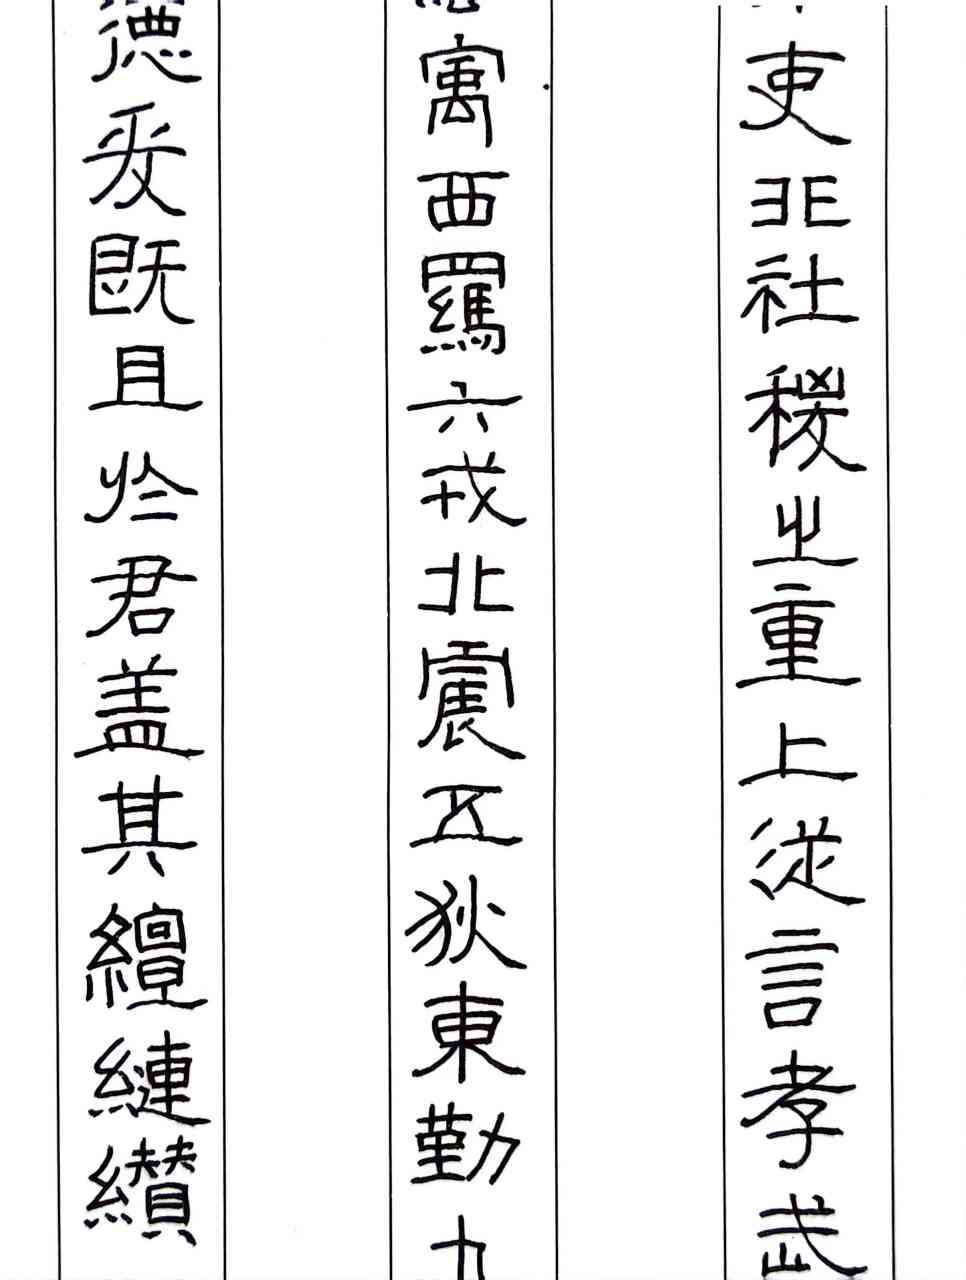 吏非社稷之重上從言孝武
寓西羈六戎北震五狄東勤九
德爰既且於君盖其繵縺纘